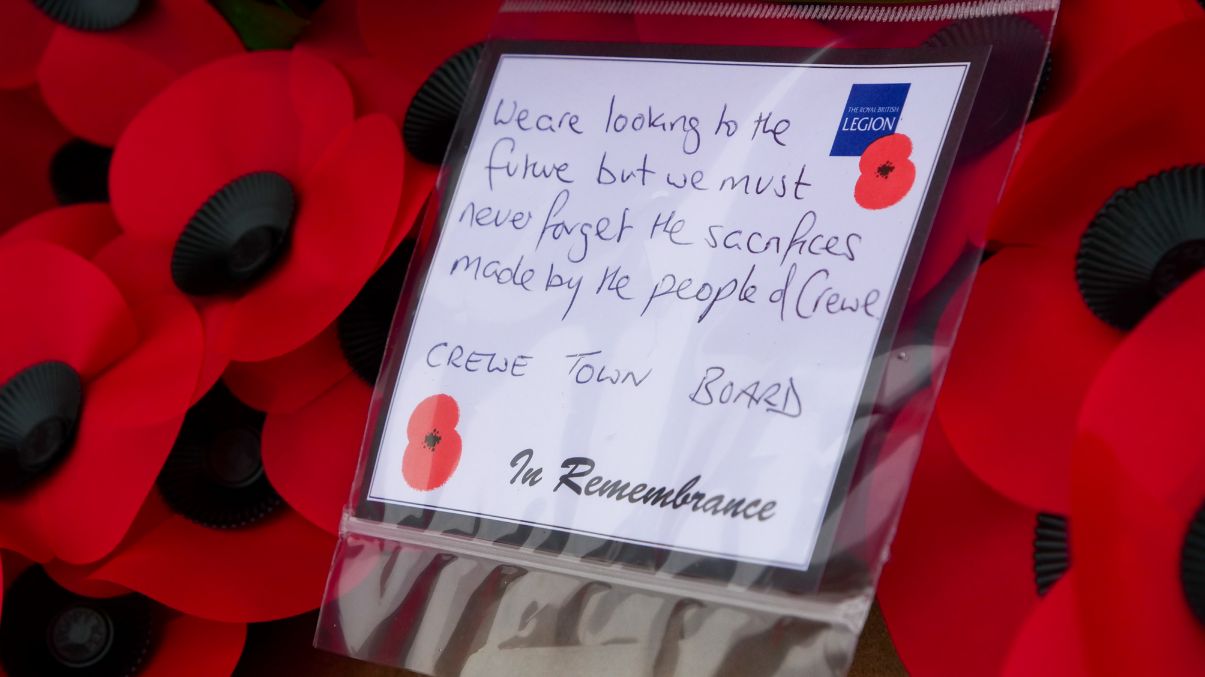 THE ROYAL BRITISH
LEGION
We are looking to the
future but we must
never forget the sacrifices
made by the people of Crewe.
CREWE TOWN BOARD
In Remembrance